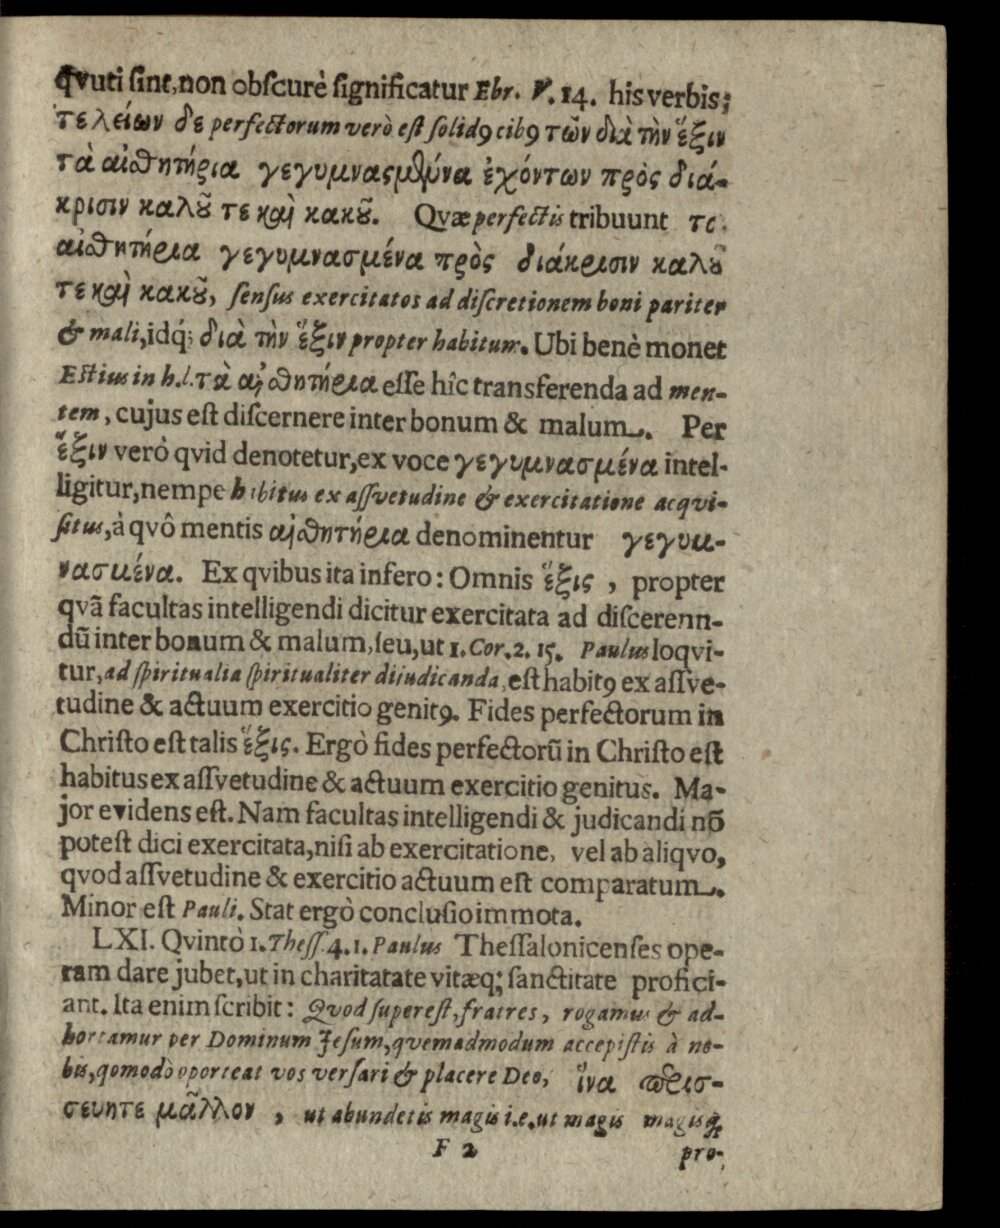 qvuti sint, non obscurè significatur Ebr. V. 14. his verbis;
τελείων δε perfectorum verò est solidꝰ cibꝰ τῶν διὰ τὴν ἕξιν
τὰ αἰσθητήρια γεγυμνασμένα ἐχόντων πρὸς διά-
κρισιν καλȣ̃ τε καὶ κακȣ̃. Qvæ perfectis tribuunt τὰ
αἰσθητήρια γεγυμνασμένα πρὸς διάκρισιν καλȣ̃
τε καὶ κακȣ̃, sensus exercitatos ad discretionem boni pariter
& mali, idq; διὰ τὴν ἕξιν propter habitum. Ubi benè monet
Estius in h.l. τὰ αἰσθητήρια esse hîc transferenda ad men-
tem, cujus est discernere inter bonum & malum. Per
ἕξιν verò qvid denotetur, ex voce γεγυμνασμένα intel-
ligitur, nempe habitus ex assvetudine & exercitatione acqvi-
situs, à qvô mentis αἰσθητήρια denominentur γεγυμ-
νασμένα. Ex qvibus ita infero: Omnis ἕξις, propter
qvã facultas intelligendi dicitur exercitata ad discerenn-
dũ inter bonum & malum, seu, ut 1. Cor. 2. 15. Paulus loqvi-
tur, ad spiritualia spiritualiter dijudicanda, est habitꝰ ex assve-
tudine & actuum exercitio genitꝰ. Fides perfectorum in
Christo est talis ἕξις. Ergò fides perfectorũ in Christo est
habitus ex assvetudine & actuum exercitio genitus. Ma-
jor evidens est. Nam facultas intelligendi & judicandi nõ
potest dici exercitata, nisi ab exercitatione, vel ab aliqvo,
qvod assvetudine & exercitio actuum est comparatum.
Minor est Pauli. Stat ergò conclusio immota.
LXI. Qvintò 1. Thess. 4. 1. Paulus Thessalonicenses ope-
ram dare jubet, ut in charitatate vitæq; sanctitate profici-
ant. Ita enim scribit: Quod superest, fratres, rogamus & ad-
hortamur per Dominum Jesum, quemadmodum accepistis à no-
bis, qomodò oporteat vos versari & placere Deo, ἵνα περισ-
σευητε μᾶλλον, ut abundetis magis i.e. ut magis magisq;
F 2 pro-